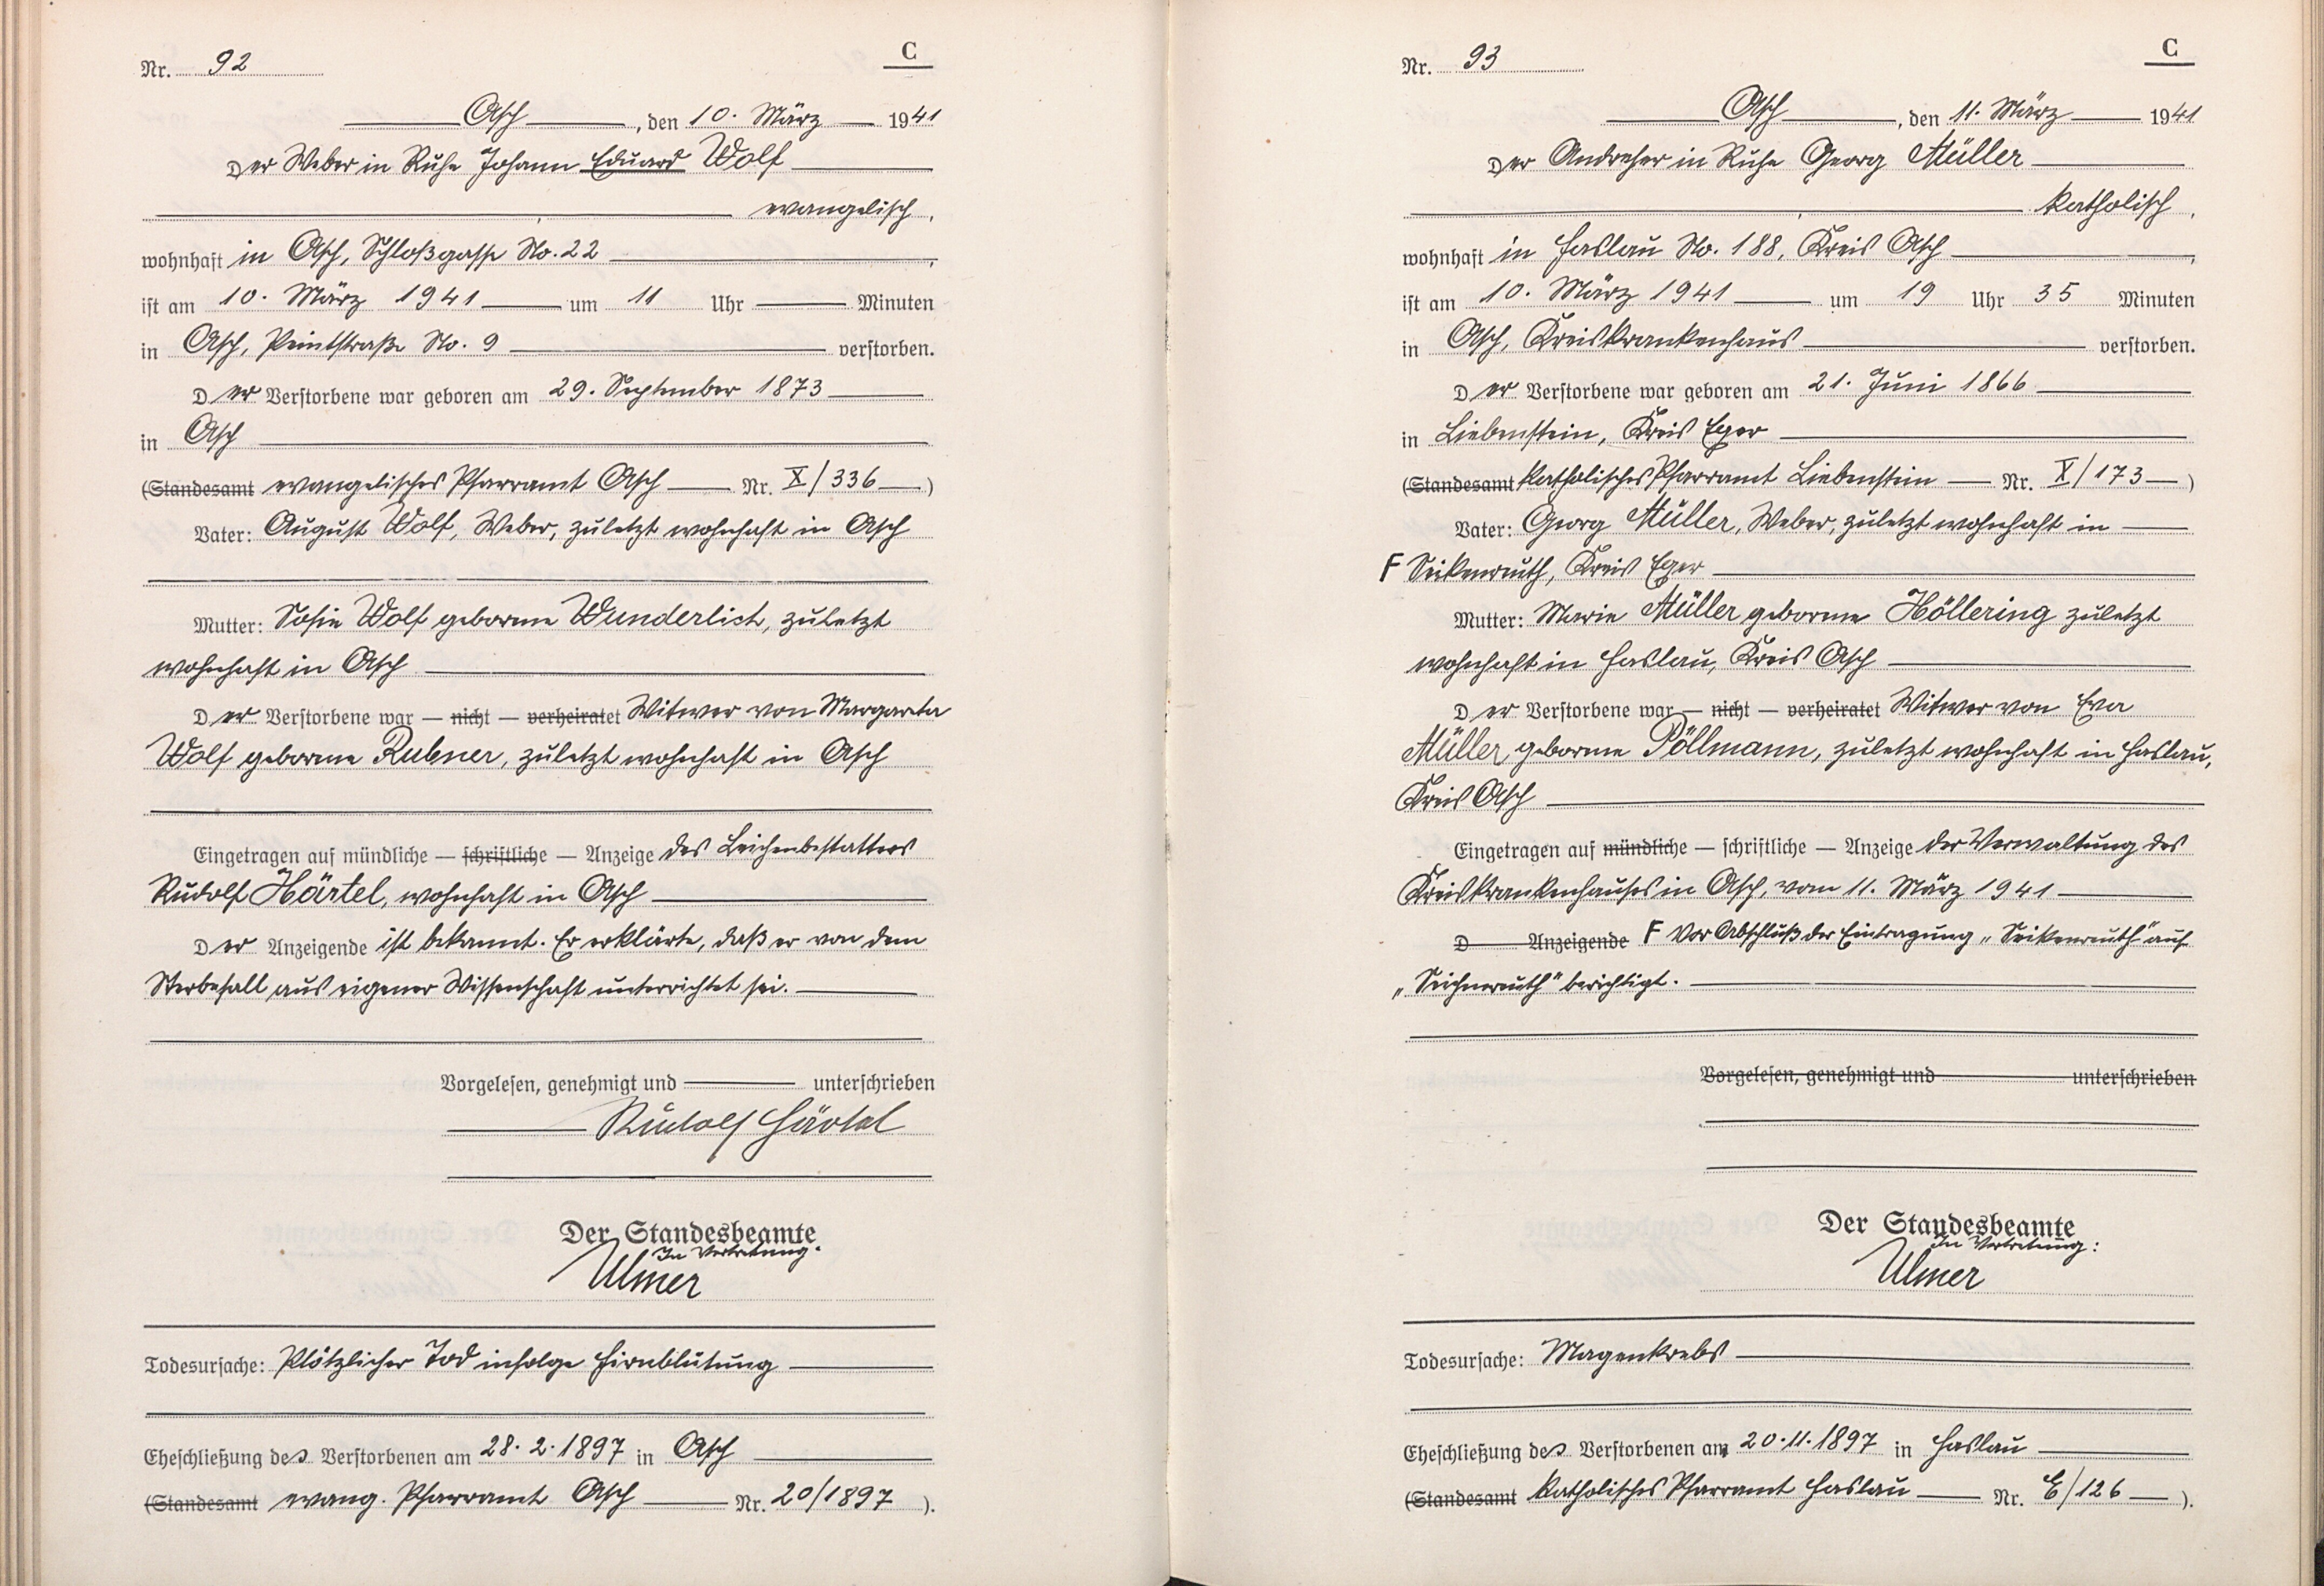 Nr. 92
C
Asch, den 10. März 1941
Der Weber in Ruhe Johann Eduard Wolf
evangelisch,
wohnhaft in Asch, Schloßgasse No. 22,
ist am 10. März 1941 um 11 Uhr Minuten
in Asch, Peintstraße No. 9 verstorben.
Der Verstorbene war geboren am 29. September 1873
in Asch
(Standesamt evangelisches Pfarramt Asch Nr. X/336)
Vater: August Wolf, Weber, zuletzt wohnhaft in Asch
Mutter: Sofie Wolf geborene Wunderlich, zuletzt
wohnhaft in Asch
Der Verstorbene war — nicht — verheiratet Witwer von Margareta
Wolf geborene Rubner, zuletzt wohnhaft in Asch
Eingetragen auf mündliche — schriftliche — Anzeige des Leichenbestatters
Rudolf Härtel, wohnhaft in Asch
Der Anzeigende ist bekannt. Er erklärte, daß er von dem
Sterbefall aus eigener Wissenschaft unterrichtet sei.
Vorgelesen, genehmigt und unterschrieben
Rudolf Härtel
Der Standesbeamte
In Vertretung:
Ulmer
Todesursache: Plötzlicher Tod infolge Hirnblutung
Eheschließung des Verstorbenen am 28. 2. 1897 in Asch
(Standesamt evang. Pfarramt Asch Nr. 20/1897).
Nr. 93
C
Asch, den 11. März 1941
Der Andreher in Ruhe Georg Müller
katholisch,
wohnhaft in Haslau No. 188, Kreis Asch,
ist am 10. März 1941 um 19 Uhr 35 Minuten
in Asch, Kreiskrankenhaus verstorben.
Der Verstorbene war geboren am 21. Juni 1866
in Liebenstein, Kreis Eger
(Standesamt katholisches Pfarramt Liebenstein Nr. X/173)
Vater: Georg Müller, Weber, zuletzt wohnhaft in
F Seikenreuth, Kreis Eger
Mutter: Marie Müller geborene Höllering zuletzt
wohnhaft in Haslau, Kreis Asch
Der Verstorbene war — nicht — verheiratet Witwer von Eva
Müller geborene Pöllmann, zuletzt wohnhaft in Haslau,
Kreis Asch
Eingetragen auf mündliche — schriftliche — Anzeige der Verwaltung des
Kreiskrankenhauses in Asch, vom 11. März 1941
D Anzeigende F Vor Abschluß der Eintragung „Seikenreuth" auf
„Seichenreuth" berichtigt.
Vorgelesen, genehmigt und unterschrieben
Der Standesbeamte
In Vertretung:
Ulmer
Todesursache: Magenkrebs
Eheschließung des Verstorbenen am 20. 11. 1897 in Haslau
(Standesamt katholisches Pfarramt Haslau Nr. E/126).